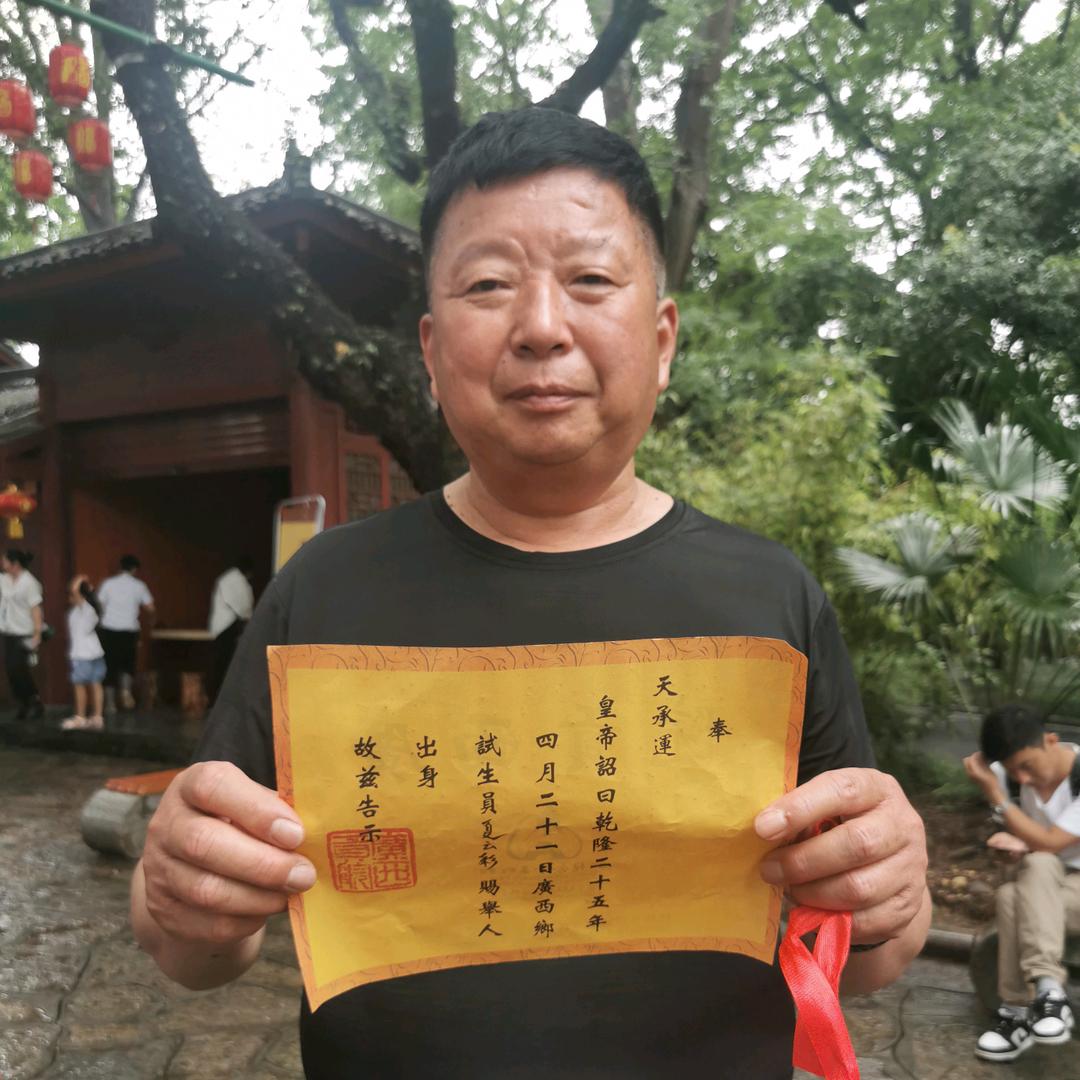 奉
天承運
皇帝詔曰乾隆二十五年
四月二十一日廣西鄉
試生員夏云彩賜舉人
出身
故兹告示
福
福